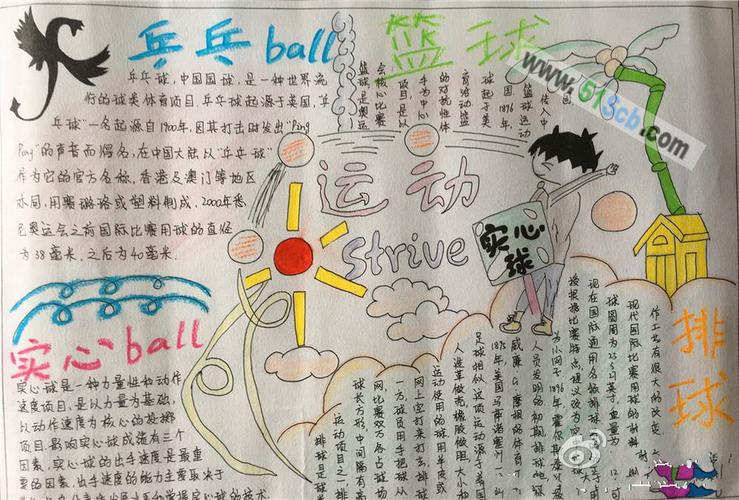 乒乓ball
乒乓球,中国国球,是一种世界流
行的球类体育项目,乒乓球起源于英国,"乒
乓球"一名起源自1900年,因其打击时发出"Ping
Pong"的声音而得名,在中国大陆以"乒乓球"
作为它的官方名称,香港及澳门等地区
亦同,用赛璐珞或塑料制成,2000年悉
尼奥运会之前国际比赛用球的直径
为38毫米,之后为40毫米.
篮球
国
传入中
篮球运动
国,1896年,
球起于美
育运动,篮
的对抗性体
手为中心
项目,是以
会核心比赛
篮球,是奥运
www.513cb.com
运动
Strive
实心球
实心ball
实心球是一种力量性和动作
速度项目,是以力量为基础,
以动作速度为核心的投掷
项目.影响实心球成绩有三个
因素,实心球的出手速度是最重
要的因素,出手速度的能力主要取决于
排球
现代国际比赛用球的材料
人员发明的初期排球
威廉G摩根的体育
1895年,美国马萨诸塞州一
足球相似.这项运动源于美国
运动使用的球,用羊皮或
网上空打来打去,排球
一方,球员用手把球从
网,比赛双方各占球场
球长方形,中间隔有高
运动项目之一,排
排球是球